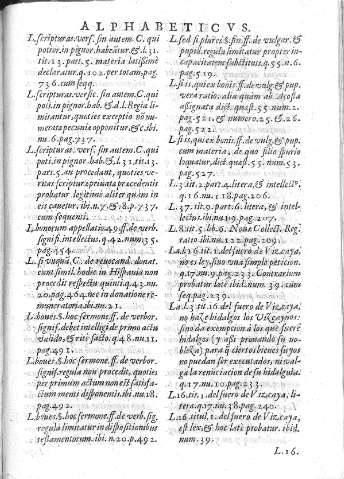 ALPHABETICVS.
L. scripturas. vers. sin autem C. qui
potior. in pignor. habeãtur, & l. 31.
tit. 13. part. 5. materia latissimè
declaratur. q. 102. per totam, pag.
736. cum seqq.
L. scripturas. versic. sin autem C. qui
poti. in pignor. hab. & d. l. Regia li
mitantur, quoties exceptio nõ nu
merata pecunia opponitur, & c. ibi
nu. 6. pag. 737.
L. scripturas. vers. sin autem. C. qui
poti. in pignor. hab. & l. 31. tit. 13.
part. 5. an procedant, quoties ve-
ritas scripturæ priuata præcedentis
probatur legitimè aliter quam in
eis cauetur. ibi. n. 7. & 8. p. 737.
cum sequenti.
L. bonorum appellatio 49. ff. de verb.
signif. intellectus. q. 42. num. 35.
pag. 454.
L. si vnquã, C. de reuocand. donat.
cum simil. hodie in Hispania non
procedit respectu quinti. q. 43. nu.
20. pag. 464. nec in donatione re-
muneratoria. ibi nu.
L. boues. §. hoc sermone ff. de verbor.
signif. debet intelligi de primo actu
valido, & ritè facto. q. 48. nu. 11.
pag. 491.
L. boues. §. hoc sermone. ff. de verbor.
signif. regula non procedit, quoties
per primum actum non est satisfa-
ctum menti disponentis. ibi. nu. 18.
pag. 492.
L. boues, §. hoc sermone. ff. de verb. sig.
regula limitatur in dispositionibus
testamentorum. ibi. n. 20. p. 492.
L. sed si plures §. sin. ff. de vulgar. &
pupil. regula limitatur propter in-
capacitatem substituti. q. 55. n.
pag. 519.
L. si is, qui ex bonis. ff. de vulg. & pup.
vera ratio, alia quàm ab Acosta
assignata dict. quæst. 55. num. 2.
pag. 521. & numero. 25. & 26.
pag. 522.
L. si is, qui ex bonis. ff. de vulg. & pup.
eum materia, de quo filio spurio
loquatur, dict. quæst. 55. num. 53.
pag. 527.
L. 3. tit. 2. part. 4. litera, & intellect.
q. 16. nu. 18. pag. 206.
L. 37. tit. 9. part. 6. litera, & intel-
lectus. ibi. nu. 19. pag. 207.
L. 8. tit. 5. lib. 6. Nouæ Collect. Reg.
ratio ibi. nu. 122. pag. 209.
La l. 16. tit. 1. del fuero de Vizcaya,
no es ley, sino vna simple peticion.
q. 17. nu. 9. pag. 233. Contrarium
probatur latè ibi. num. 39. cum
seq. pag. 239.
La l. 3. tit. 1. del fuero de Vizcaya,
no haze hidalgos los Vizcaynos:
sino da exempcion à los que fuerẽ
hidalgos (y assi prouando su no-
bleza) para q̃ ciertos bienes suyos
no puedan ser executados: no val-
ga la renũciacion de su hidalguia.
q. 17. nu. 10. pag. 233.
L. 16. tit. 1. del fuero de Vizcaya, li-
tera. q. 17. nu. 38. pag. 240.
L. 16. titul. 1. del fuero de Vizcaya,
est lex, & hoc latè probatur. ibid.
num. 39.
L. 16.